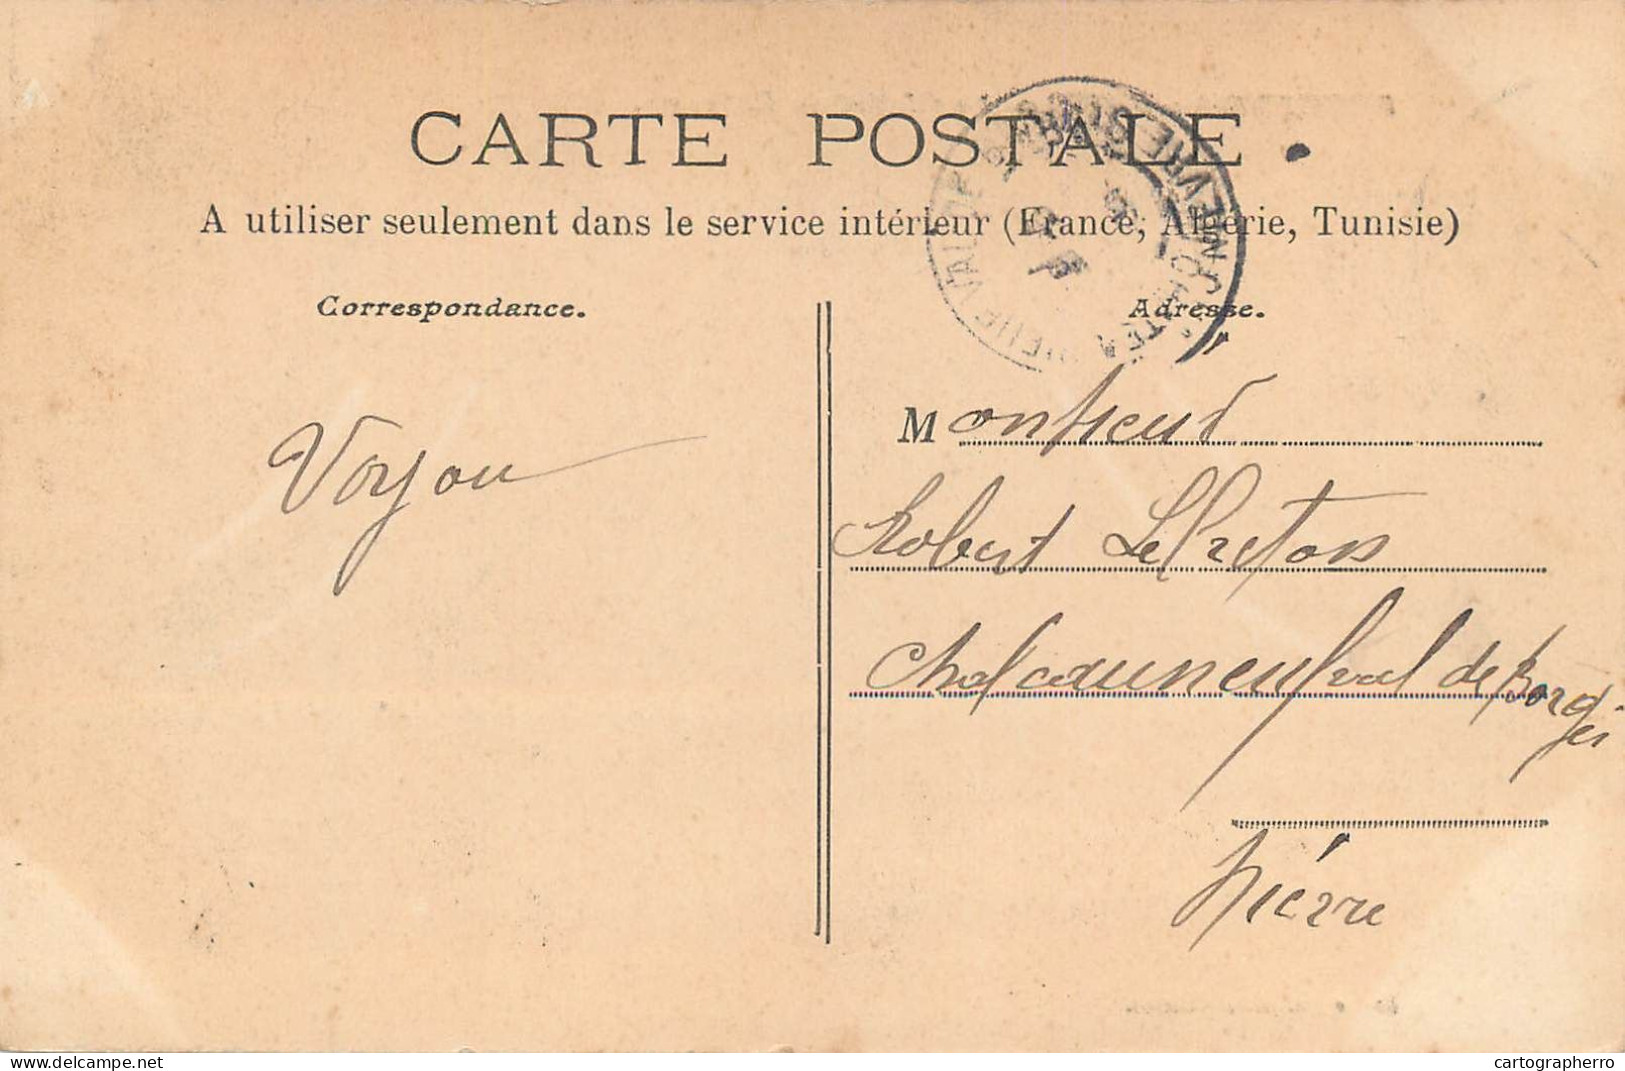 CARTE POSTALE
A utiliser seulement dans le service intérieur (France, Algérie, Tunisie)
Correspondance.
Adresse.
Voyou
Monsieur
Robert
Chateauneuf val de Bargis
Nièvre
delcampe.net
cartographerro